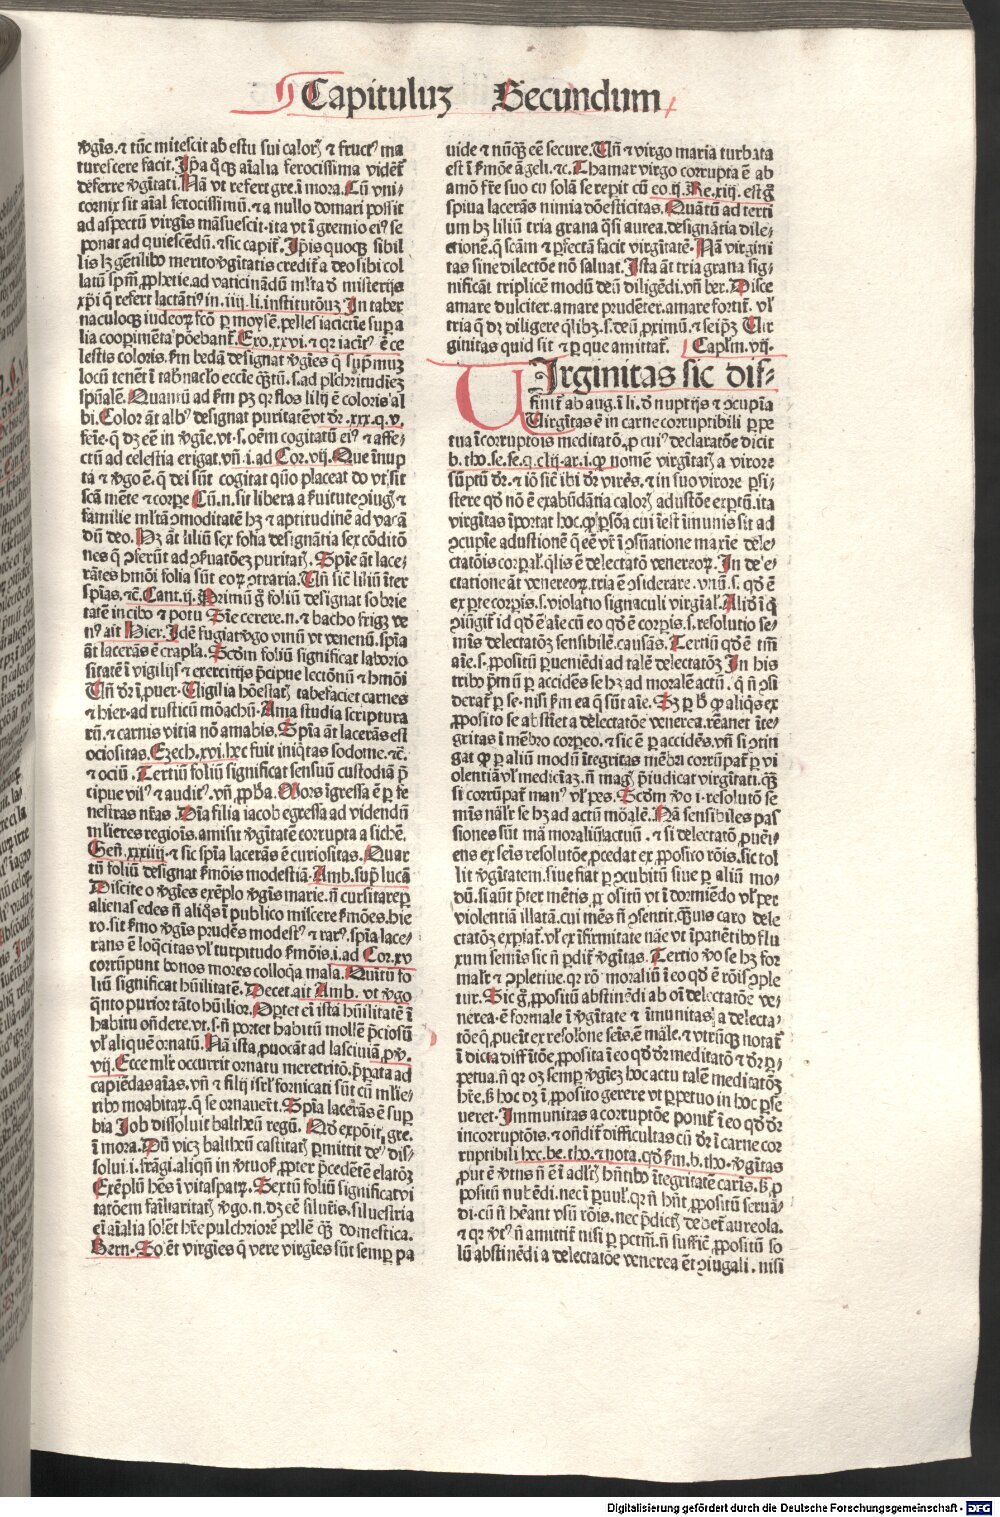 Capituluʒ Secundum
v̄gīs. ⁊ tūc mitescit ab estu sui calorꝭ ⁊ fructꝰ ma
turescere facit. Ip̄a q̄qꝫ aīalia ferocissima vident̄
deferre v̄gītati. Nā vt refert gre. ī mora. Cū vni-
cornix sit aīal ferocissimū. ⁊ a nullo domari possit
ad aspectū virgīs māsuescit. ita vt ī gremio eiꝰ se
ponat ad quiescēdū. ⁊ sic capit̄. Ip̄is quoqꝫ sibil
lis hꝫ gētilibꝰ merito v̄gītatis credit̄ a deo sibi col
latū sp̄m ꝓphetie. ad vaticinādū mlta d̄ misterijs
xp̄i q̄ refert lactātiꝰ in .iiij. li. institutōnuꝫ In taber
naculoqꝫ iudeoꝝ fc̄o ꝑ moysē. pelles iacictīe supra
lia coopimēta pōebant̄. Exo. xxvi. ⁊ qꝛ iacītꝰ ē ce
lestis coloris. s̄m bedā designat v̄gīes q̄ sup̄muꝫ
locū tenēt ī tab̄naclo eccīe q̄tū .s. ad plc̄hritudīeꝫ
sp̄ualē. Quantū ad s̄m pꝫ qꝛ flos lilij ē coloris al
bi. Color āt albꝰ designat puritatē vt dr̄ .xxx. q. v.
feīe. q̄ dꝫ eē in v̄gīe. vt .s. oēm cogitatū eiꝰ ⁊ affe-
ctū ad celestia erigat. vn̄ .i. ad Cor. vij. Que īnup
ta ⁊ v̄go ē. q̄ dei sūt cogitat quō placeat do vt sit
sc̄a mēte ⁊ corꝑe Cū .n. sit libera a s̄uitute ꝯiugꝭ ⁊
familie mltā ꝯmoditatē hꝫ ⁊ aptitudinē ad vacā
dū deo. Hꝫ āt liliū sex folia designātia sex cōditō
nes q̄ ꝯferūt ad ꝯs̄uatōeꝫ puritatꝭ. Spīe āt lace-
rātes hmōi folia sūt eoꝝ ꝯtraria. Un̄ sic̄ liliū īter
spīas. ⁊c̄. Cant. ij. Primū g̊ foliū designat sobrie
tatē in cibo ⁊ potu Sīe cerere .n. ⁊ bacho friget ve
nꝰ ait Hier. Idē fugiat v̄go vinū vt venenū. spīa
āt lacerās ē crapla. Scd̄m foliū significat laborio
sitatē ī vigilijs ⁊ exercitijs p̄cipue lectōnū ⁊ hmōi
Un̄ dr̄ ī ꝓuer. Uigilia hōestatꝭ tabefaciet carnes
⁊ hier. ad rusticū mōachū. Ama studia scriptura
rū. ⁊ carnis vitia nō amabis. Spīa āt lacerās est
ociositas. Ezech. xvi. hec fuit iniq̄tas sodome. ⁊c̄.
⁊ ociū. Tertiū foliū significat sensuū custodiā p̄
cipue visꝰ ⁊ auditꝰ. vn̄ ꝓpha. Mors īgressa ē ꝑ fe
nestras nr̄as. Dīa filia iacob egressa ad videndū
mlieres regiōis. amisit v̄gītatē corrupta a sichē.
Gen̄. xxxiiij. ⁊ sic spīa lacerās ē curiositas. Quar
tū foliū designat s̄mōis modestiā. Amb. sup̄ lucā
Discite o v̄gīes exēplo v̄gīs marie. n̄ cursitare ꝑ
alienas edes n̄ aliqs̄ ī publico miscere s̄mōes. hie
ro. sit s̄mo v̄gīs prudēs modestꝰ ⁊ rarꝰ. spīa lace-
rans ē loq̄citas vl̄ turpitudo s̄mōis. i. ad Cor. xv
corrūpunt bonos mores colloq̄a mala. Quītū fo
liū significat hūilitatē. Decet. ait Amb. vt v̄go
q̄nto purior tāto hūilior. Oꝑtet eī istā hūilitatē ī
habitu oñdere. vt .s. n̄ portet habitū mollē p̄ciosū
vl̄ aliquē ornatū. Nā ista ꝓuocāt ad lasciuiā. ꝓv̄.
vij. Ecce mlr̄ occurrit ornatu meretritō. p̄ꝑata ad
capiēdas aīas. vn̄ ⁊ filij isrl̄ fornicati sūt cū mlie-
ribꝰ moabitaꝝ. q̄ se ornauer̄t. Spīa lacerās ē sup̄
bia Job dissoluit baltheū regū. Qd̄ expōit gre.
ī mora. Dū vicꝫ baltheū castitatꝭ ꝑmittit deꝰ dis-
solui .i. frāgi. aliqñ in v̄tuosꝭ ꝓpter p̄cedētē elatōꝫ
Exēplū hēs ī vitaspatꝝ. Sextū foliū significat vi
tatōem faīliaritatꝭ v̄go .n. dꝫ eē siluēis. siluestria
eī aīalia solēt hr̄e pulchriorē pellē q̄ꝫ domestica.
Bern. Eo ēt virgīes q̄ vere virgīes sūt semꝑ pa
uide ⁊ nūq̄ꝫ eē secure. Un̄ ⁊ virgo maria turbata
est ī s̄mōe āgeli. ⁊c. Thamar virgo corrupta ē ab
amō fr̄e suo cū solā se reꝑit cū eo. ij. Re. xiij. est g̊
spīua lacerās nimia dōesticitas. Quātū ad terti
um hꝫ liliū tria grana q̄si aurea. designātia dile-
ctionē. q̄ sc̄am ⁊ ꝑfectā facit virgītatē. Nā virgini
tas sine dilectōe nō saluat. Ista āt tria grana sig-
nificāt triplicē modū deū diligēdi. vn̄ ber. Disce
amare dulciter. amare prudēter. amare fortit̄. vl̄
tria q̄ dꝫ diligere q̄libꝫ .s. deū. ꝓximū. ⁊ seip̄ꝫ Uir
ginitas quid sit ⁊ ꝑ que amittat̄. Caplm̄. vij.
UIrginitas sic dif-
finit̄ ab aug. ī li. d̄ nuptijs ⁊ ꝯcupīa
Uirgītas ē in carne corruptibili ꝑpe
tua īcorruptōis meditatō. ꝓ cuiꝰ declaratōe dicit
b. tho. se. se. q. clij. ar. i. ꝙ nomē virgītatꝭ a virore
sūptū dr̄. ⁊ iō sic̄ ibi dr̄ virēs. ⁊ in suo virore ꝑsi-
stere qd̄ nō ē exabūdātia calorꝭ adustōe exꝑtū. ita
virgītas īportat hoc. ꝙ ꝑsōa cui īest īmunis sit ad
ꝯcupīe adustionē q̄ eē vr̄ ī ꝯsūatione maxīe dele-
ctatōis corꝑal̄. q̄lis ē delectatō venereoꝝ. In dele-
ctatione āt venereoꝝ. tria ē ꝯsiderare. vnū .s. qd̄ ē
ex ꝑte corꝑis .s. violatio signaculi virgīal̄. Aliud ī q̊
ꝯiūgit̄ id qd̄ ē aīe cū eo qd̄ ē corꝑis .s. resolutio se-
mīs delectatōꝫ sensibilē causās. Tertiū qd̄ ē tm̄
aīe .s. ꝓpositū ꝑueniēdi ad talē delectatōꝫ In his
tribꝰ p̄mū ꝑ accidēs se hꝫ ad moralē actū. q̄ n̄ ꝯsi
derat̄ ꝑ se. nisi s̄m ea q̄ sūt aīe. Sꝫ ꝑ h̄ ꝙ aliqs̄ ex
ꝓposito se abstīet a delectatōe venerea. reꝫanet īte-
gritas ī mēbro corꝑeo. ⁊ sic ē ꝑ accidēs. vn̄ si ꝯtin
gat ꝙ ꝑ aliū modū ītegritas mēbri corrūpat̄ ꝑ vi
olentiā vl̄ mediciaꝫ. n̄ magꝭ p̄iudicat virgītati. q̄ꝫ
si corrūpat̄ manꝰ vl̄ pes. Scd̄m v̊o .i. resolutō se
mīs nālr̄ se hꝫ ad actū mōalē. Nā sensibiles pas
siones sūt mā moraliū actuū. ⁊ si delectatō ꝓueni-
ens ex seīs resolutōe ꝓcedat ex ꝓposito rōis. sic tol
lit v̄gītatem. siue fiat ꝑ ꝯcubitū siue ꝑ aliū mo-
dū. si aūt p̄ter mētis ꝓpositū vt ī dormiēdo vl̄ per
violentiā illatā. cui mēs n̄ ꝯsentit. q̄uis caro dele
ctatōꝫ expiat̄. vl̄ ex īfirmitate nāe vt īpatiētibꝰ flu
xum semīs sic n̄ ꝑdit̄ v̄gītas. Tertio v̊o se hꝫ for
malr̄ ⁊ ꝯpletiue. qꝛ rō moraliū ī eo qd̄ ē rōis ꝯple
tur. Sic g̊. ꝓpositū abstinēdi ab oī delectatōe ve-
nerea. ē formale ī v̄gītate ⁊ īmunitas a delecta-
tōe q̄ ꝓueīt ex resolōne seīs. ē māle. ⁊ vtrūqꝫ notat̄
ī dicta diffītōe. ꝓposita ī eo qd̄ dr̄ meditatō ⁊ dr̄ ꝑ-
petua. n̄ qꝛ oꝫ semꝑ v̄gīeꝫ hoc actu talē meditatōꝫ
hr̄e. sꝫ hoc dꝫ ī ꝓposito gerere vt ꝑpetuo in hoc ꝑse
ueret. Immunitas a corruptōe ponit̄ ī eo qd̄ dr̄
incorruptōis. ⁊ oñdit̄ difficultas cū dr̄ ī carne cor
ruptibili hec. be. tho. ⁊ nota. qd̄ s̄m. b. tho. v̄gītas
ꝓut ē v̄tus n̄ ē ī adltꝭ hn̄tibꝰ ītegritatē carīs. sꝫ ꝓ
positū nubēdi. nec ī ꝑuul̄. qꝛ n̄ hn̄t ꝓpositū seruā-
di. cū n̄ hēant vsū rōis. nec p̄dictꝭ debet̄ aureola.
⁊ qꝛ v̄tꝰ n̄ amittit̄ nisi ꝑ pctm̄. n̄ suffic̄ ꝓpositū so
lū abstinēdi a delectatōe venerea ēt ꝯiugali. nisi
Digitalisierung gefördert durch die Deutsche Forschungsgemeinschaft - DFG